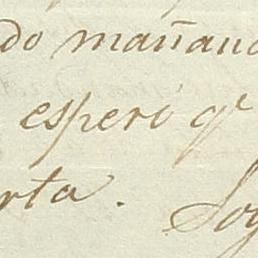 do mañana
esperó q.e
rta. Soy